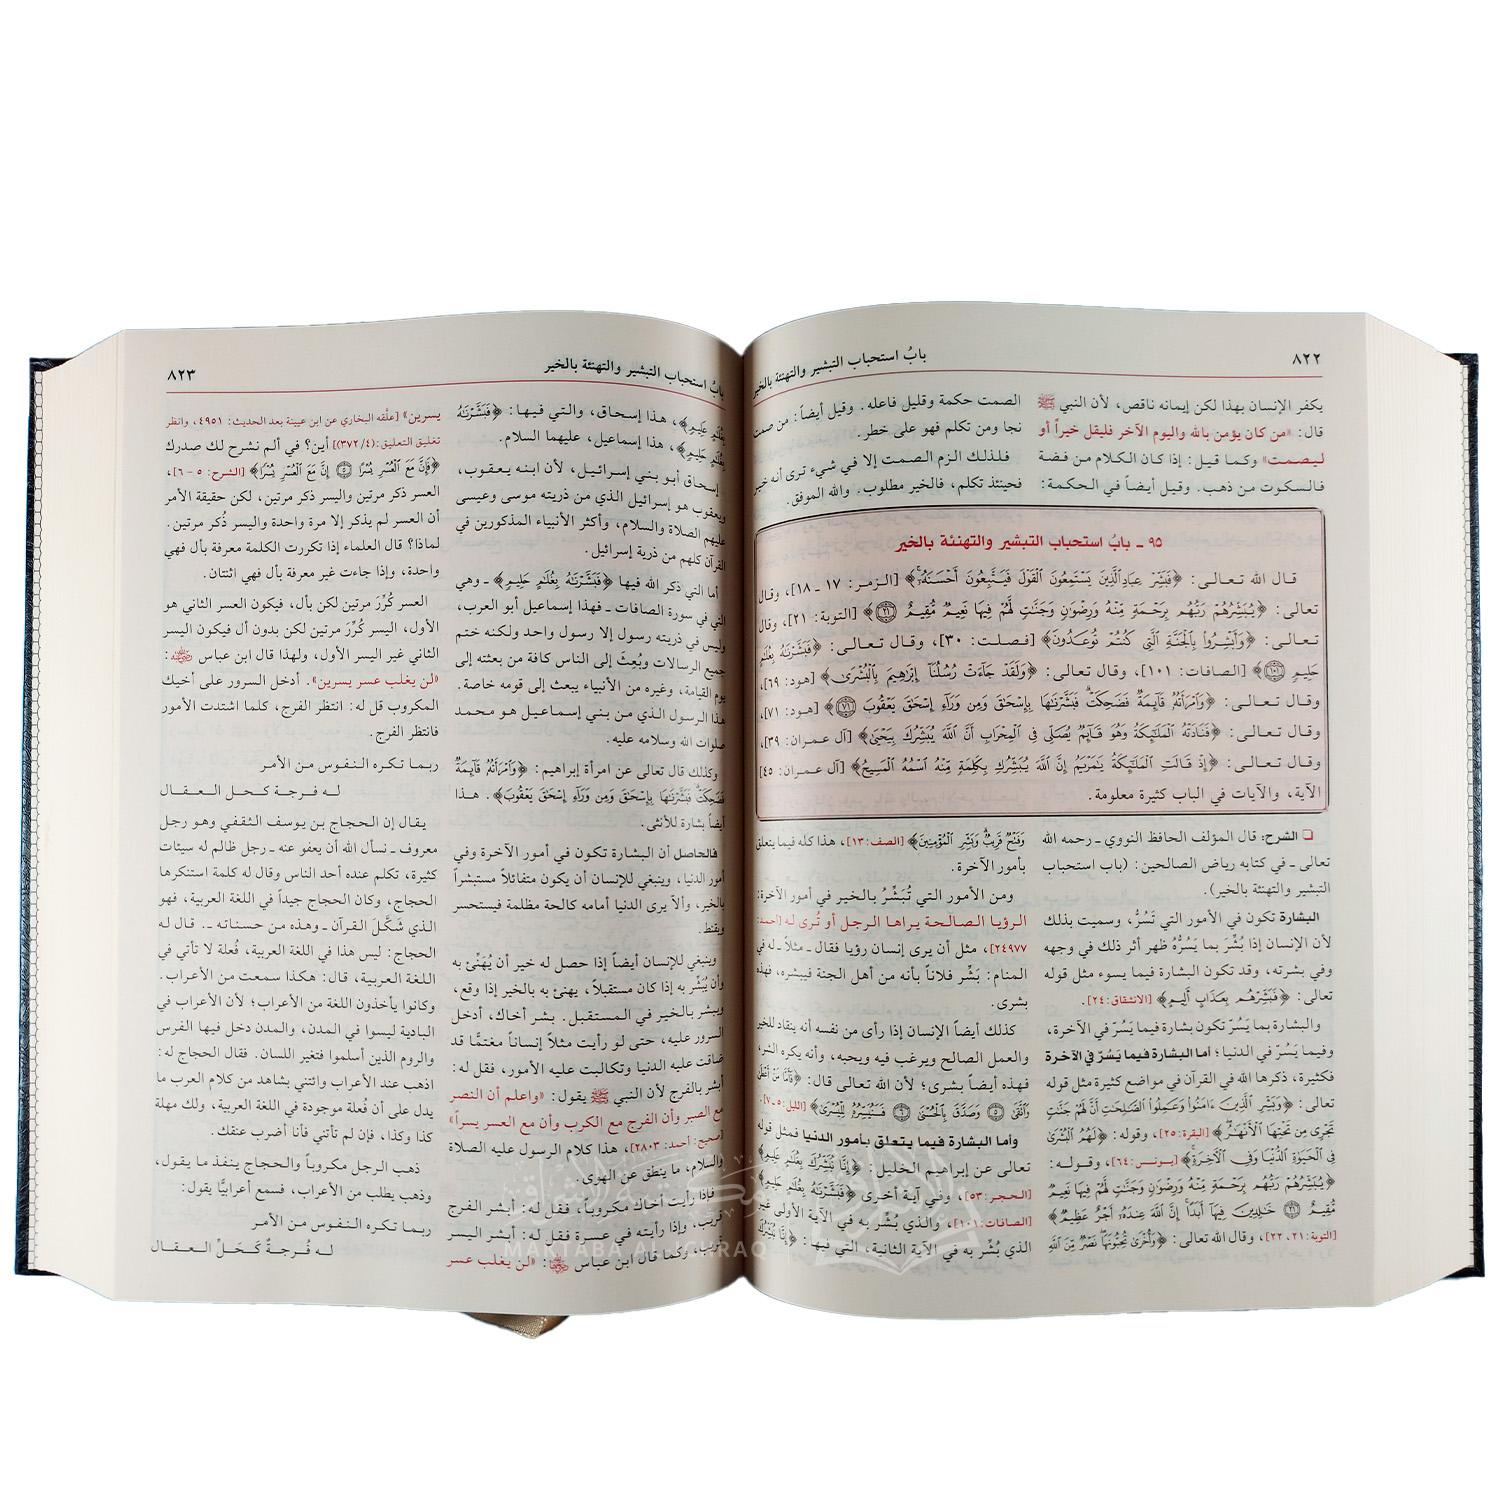 ٨٢٢
بابُ استحباب التبشير والتهنئة بالخير
يكفر الإنسان بهذا لكن إيمانه ناقص، لأن النبي ﷺ
قال: «من كان يؤمن بالله واليوم الآخر فليقل خيراً أو
ليصمت» وكما قيل: إذا كان الكلام من فضة
فالسكوت من ذهب. وقيل أيضاً في الحكمة:
الصمت حكمة وقليل فاعله. وقيل أيضاً: من صمت
نجا ومن تكلم فهو على خطر.
فلذلك الزم الصمت إلا في شيء ترى أنه خير
فحينئذ تكلم، فالخير مطلوب. والله الموفق.
٩٥ ـ بابُ استحباب التبشير والتهنئة بالخير
قال الله تعالى: ﴿فَبَشِّرْ عِبَادِ الَّذِينَ يَسْتَمِعُونَ الْقَوْلَ فَيَتَّبِعُونَ أَحْسَنَهُ﴾ [الزمر: ١٧ ـ ١٨]، وقال
تعالى: ﴿يُبَشِّرُهُمْ رَبُّهُم بِرَحْمَةٍ مِّنْهُ وَرِضْوَانٍ وَجَنَّاتٍ لَّهُمْ فِيهَا نَعِيمٌ مُّقِيمٌ ٢١﴾ [التوبة: ٢١]، وقال
تعالى: ﴿وَأَبْشِرُوا بِالْجَنَّةِ الَّتِي كُنتُمْ تُوعَدُونَ﴾ [فصلت: ٣٠]، وقال تعالى: ﴿فَبَشَّرْنَاهُ بِغُلَامٍ
حَلِيمٍ ١٠١﴾ [الصافات: ١٠١]، وقال تعالى: ﴿وَلَقَدْ جَاءَتْ رُسُلُنَا إِبْرَاهِيمَ بِالْبُشْرَى﴾ [هود: ٦٩]،
وقال تعالى: ﴿وَامْرَأَتُهُ قَائِمَةٌ فَضَحِكَتْ فَبَشَّرْنَاهَا بِإِسْحَاقَ وَمِن وَرَاءِ إِسْحَاقَ يَعْقُوبَ ٧١﴾ [هود: ٧١]،
وقال تعالى: ﴿فَنَادَتْهُ الْمَلَائِكَةُ وَهُوَ قَائِمٌ يُصَلِّي فِي الْمِحْرَابِ أَنَّ اللَّهَ يُبَشِّرُكَ بِيَحْيَى﴾ [آل عمران: ٣٩]،
وقال تعالى: ﴿إِذْ قَالَتِ الْمَلَائِكَةُ يَا مَرْيَمُ إِنَّ اللَّهَ يُبَشِّرُكِ بِكَلِمَةٍ مِّنْهُ اسْمُهُ الْمَسِيحُ﴾ [آل عمران: ٤٥]
الآية، والآيات في الباب كثيرة معلومة.
الشرح: قال المؤلف الحافظ النووي ـ رحمه الله
تعالى ـ في كتابه رياض الصالحين: (باب استحباب
التبشير والتهنئة بالخير).
البشارة تكون في الأمور التي تَسُرُّ، وسميت بذلك
لأن الإنسان إذا بُشِّرَ بما يَسُرُّهُ ظهر أثر ذلك في وجهه
وفي بشرته، وقد تكون البشارة فيما يسوء مثل قوله
تعالى: ﴿فَبَشِّرْهُم بِعَذَابٍ أَلِيمٍ﴾ [الانشقاق: ٢٤].
والبشارة بما يَسُرّ تكون بشارة فيما يَسُرّ في الآخرة،
وفيما يَسُرّ في الدنيا؛ أما البشارة فيما يَسُرّ في الآخرة
فكثيرة، ذكرها الله في القرآن في مواضع كثيرة مثل قوله
تعالى: ﴿وَبَشِّرِ الَّذِينَ آمَنُوا وَعَمِلُوا الصَّالِحَاتِ أَنَّ لَهُمْ جَنَّاتٍ
تَجْرِي مِن تَحْتِهَا الْأَنْهَارُ﴾ [البقرة: ٢٥]، وقوله: ﴿لَهُمُ الْبُشْرَى
فِي الْحَيَاةِ الدُّنْيَا وَفِي الْآخِرَةِ﴾ [يونس: ٦٤]، وقوله:
﴿يُبَشِّرُهُمْ رَبُّهُم بِرَحْمَةٍ مِّنْهُ وَرِضْوَانٍ وَجَنَّاتٍ لَّهُمْ فِيهَا نَعِيمٌ
مُّقِيمٌ ٢١ خَالِدِينَ فِيهَا أَبَدًا إِنَّ اللَّهَ عِندَهُ أَجْرٌ عَظِيمٌ﴾
[التوبة: ٢١، ٢٢]، وقال الله تعالى: ﴿وَأُخْرَى تُحِبُّونَهَا نَصْرٌ مِّنَ اللَّهِ
وَفَتْحٌ قَرِيبٌ وَبَشِّرِ الْمُؤْمِنِينَ﴾ [الصف: ١٣]، هذا كله فيما يتعلق
بأمور الآخرة.
ومن الأمور التي تُبَشِّرُ بالخير في أمور الآخرة:
الرؤيا الصالحة يراها الرجل أو تُرى له [أحمد:
٢٤٩٧٧]، مثل أن يرى إنسان رؤيا فقال ـ مثلاً ـ له في
المنام: بَشِّر فلاناً بأنه من أهل الجنة فيبشره، فهذه
بشرى.
كذلك أيضاً الإنسان إذا رأى من نفسه أنه ينقاد للخير
والعمل الصالح ويرغب فيه ويحبه، وأنه يكره الشر،
فهذه أيضاً بشرى؛ لأن الله تعالى قال: ﴿فَأَمَّا مَنْ أَعْطَى
وَاتَّقَى ٥ وَصَدَّقَ بِالْحُسْنَى ٦ فَسَنُيَسِّرُهُ لِلْيُسْرَى﴾ [الليل: ٥ ـ ٧].
وأما البشارة فيما يتعلق بأمور الدنيا فمثل قوله
تعالى عن إبراهيم الخليل: ﴿إِنَّا نُبَشِّرُكَ بِغُلَامٍ عَلِيمٍ﴾
[الحجر: ٥٣]، وفي آية أخرى ﴿فَبَشَّرْنَاهُ بِغُلَامٍ حَلِيمٍ﴾
[الصافات: ١٠١]، والذي بُشِّر به في الآية الأولى غير
الذي بُشِّر به في الآية الثانية، التي فيها: ﴿إِنَّا نُبَشِّرُكَ
بابُ استحباب التبشير والتهنئة بالخير
٨٢٣
بِغُلَامٍ عَلِيمٍ﴾، هذا إسحاق، والتي فيها: ﴿فَبَشَّرْنَاهُ
بِغُلَامٍ حَلِيمٍ﴾، هذا إسماعيل، عليهما السلام.
إسحاق أبو بني إسرائيل، لأن ابنه يعقوب،
ويعقوب هو إسرائيل الذي من ذريته موسى وعيسى
عليهم الصلاة والسلام، وأكثر الأنبياء المذكورين في
القرآن كلهم من ذرية إسرائيل.
أما التي ذكر الله فيها ﴿فَبَشَّرْنَاهُ بِغُلَامٍ حَلِيمٍ﴾ ـ وهي
التي في سورة الصافات ـ فهذا إسماعيل أبو العرب،
وليس في ذريته رسول إلا رسول واحد ولكنه ختم
جميع الرسالات وبُعِثَ إلى الناس كافة من بعثته إلى
يوم القيامة، وغيره من الأنبياء يبعث إلى قومه خاصة.
هذا الرسول الذي من بني إسماعيل هو محمد
صلوات الله وسلامه عليه.
وكذلك قال تعالى عن امرأة إبراهيم: ﴿وَامْرَأَتُهُ قَائِمَةٌ
فَضَحِكَتْ فَبَشَّرْنَاهَا بِإِسْحَاقَ وَمِن وَرَاءِ إِسْحَاقَ يَعْقُوبَ﴾. هذا
أيضاً بشارة للأنثى.
فالحاصل أن البشارة تكون في أمور الآخرة وفي
أمور الدنيا، وينبغي للإنسان أن يكون متفائلاً مستبشراً
بالخير، وألا يرى الدنيا أمامه كالحة مظلمة فيستحسر
ويقنط.
وينبغي للإنسان أيضاً إذا حصل له خير أن يُهَنَّئ به
وأن يُبَشَّر به إذا كان مستقبلاً، يهنئ به بالخير إذا وقع،
ويبشر بالخير في المستقبل. بشر أخاك، أدخل
السرور عليه، حتى لو رأيت مثلاً إنساناً مغتمًّا قد
ضاقت عليه الدنيا وتكالبت عليه الأمور، فقل له:
أبشر بالفرج لأن النبي ﷺ يقول: «واعلم أن النصر
مع الصبر وأن الفرج مع الكرب وأن مع العسر يسراً»
[صحيح: أحمد: ٢٨٠٣]، هذا كلام الرسول عليه الصلاة
والسلام، ما ينطق عن الهوى.
فإذا رأيت أخاك مكروباً، فقل له: أبشر الفرج
قريب، وإذا رأيته في عسرة فقل له: أبشر اليسر
قريب، وكما قال ابن عباس رضي الله عنهما: «لن يغلب عسر
يسرين» [علّقه البخاري عن ابن عيينة بعد الحديث: ٤٩٥١، وانظر
تغليق التعليق: (٣٧٢/٤)] أين؟ في ألم نشرح لك صدرك
﴿فَإِنَّ مَعَ الْعُسْرِ يُسْرًا ٥ إِنَّ مَعَ الْعُسْرِ يُسْرًا﴾ [الشرح: ٥ - ٦]،
العسر ذكر مرتين واليسر ذكر مرتين، لكن حقيقة الأمر
أن العسر لم يذكر إلا مرة واحدة واليسر ذُكر مرتين.
لماذا؟ قال العلماء إذا تكررت الكلمة معرفة بأل فهي
واحدة، وإذا جاءت غير معرفة بأل فهي اثنتان.
العسر كُرِّرَ مرتين لكن بأل، فيكون العسر الثاني هو
الأول، اليسر كُرِّرَ مرتين لكن بدون أل فيكون اليسر
الثاني غير اليسر الأول، ولهذا قال ابن عباس رضي الله عنهما:
«لن يغلب عسر يسرين». أدخل السرور على أخيك
المكروب قل له: انتظر الفرج، كلما اشتدت الأمور
فانتظر الفرج.
ربما تكره النفوس من الأمر
له فرجة كحل العقال
يقال إن الحجاج بن يوسف الثقفي وهو رجل
معروف ـ نسأل الله أن يعفو عنه ـ رجل ظالم له سيئات
كثيرة، تكلم عنده أحد الناس وقال له كلمة استنكرها
الحجاج، وكان الحجاج جيداً في اللغة العربية، فهو
الذي شَكَّلَ القرآن ـ وهذه من حسناته ـ. قال له
الحجاج: ليس هذا في اللغة العربية، فُعلة لا تأتي في
اللغة العربية، قال: هكذا سمعت من الأعراب.
وكانوا يأخذون اللغة من الأعراب؛ لأن الأعراب في
البادية ليسوا في المدن، والمدن دخل فيها الفرس
والروم الذين أسلموا فتغير اللسان. فقال الحجاج له:
اذهب عند الأعراب وائتني بشاهد من كلام العرب ما
يدل على أن فُعلة موجودة في اللغة العربية، ولك مهلة
كذا وكذا، فإن لم تأتني فأنا أضرب عنقك.
ذهب الرجل مكروباً والحجاج ينفذ ما يقول،
وذهب يطلب من الأعراب، فسمع أعرابيًّا يقول:
ربما تكره النفوس من الأمر
له فُرجةٌ كَحَلِّ العقال
مكتبة الإشراق
MAKTABA AL-ISHRAQ